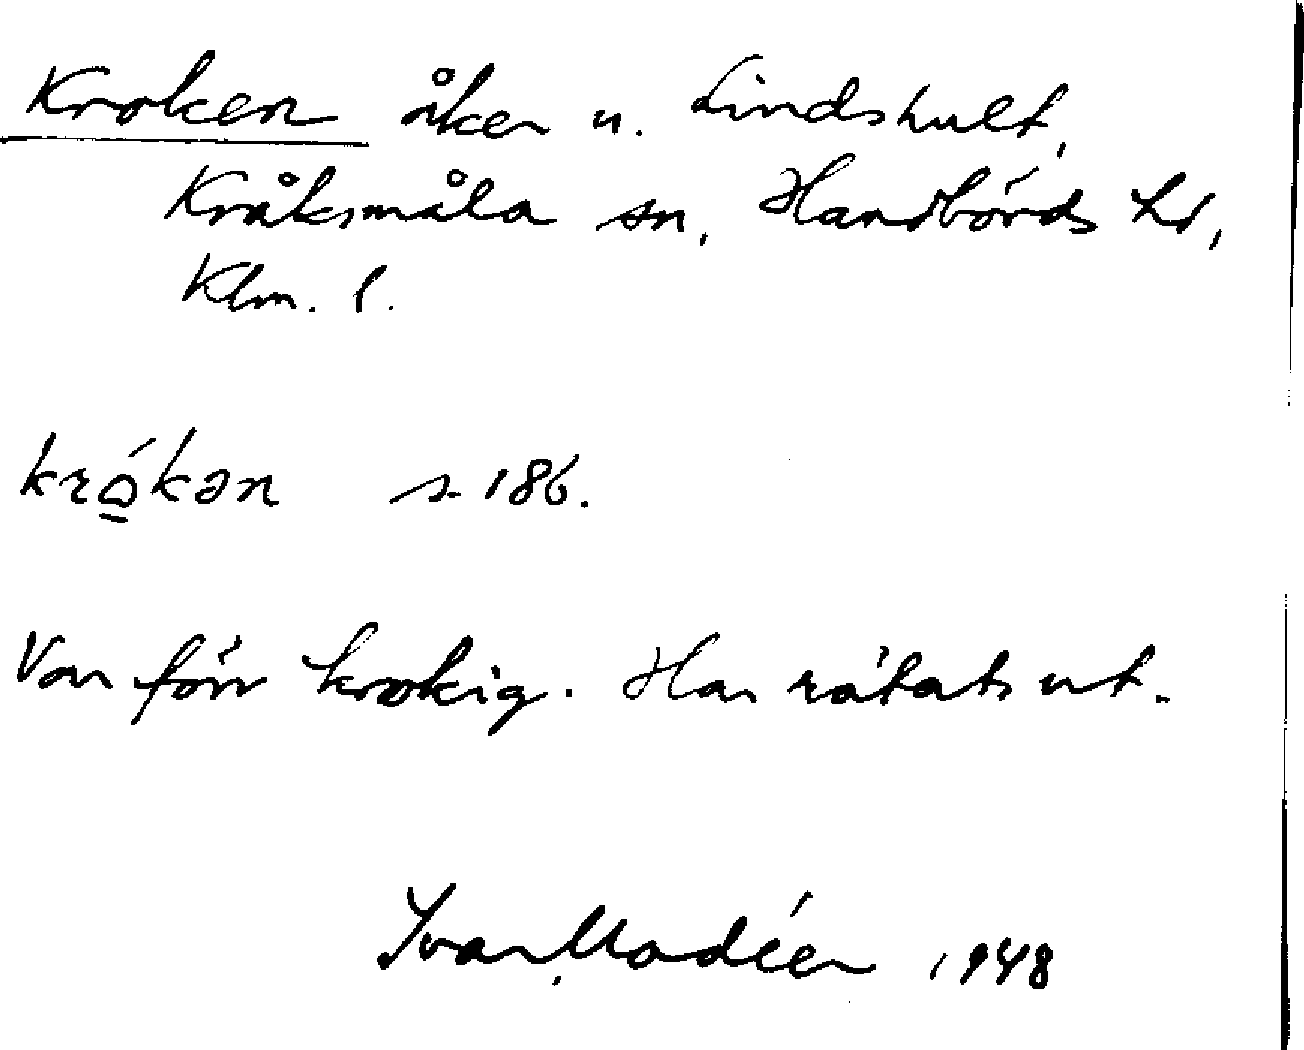 Kroken åker u. Lindshult,
Kråksmåla sn, Handbörds hd,
Klm. l.
kró̲kən s. 186.
Var förr krokig. Har rätats ut.
Ivar Modéer 1948